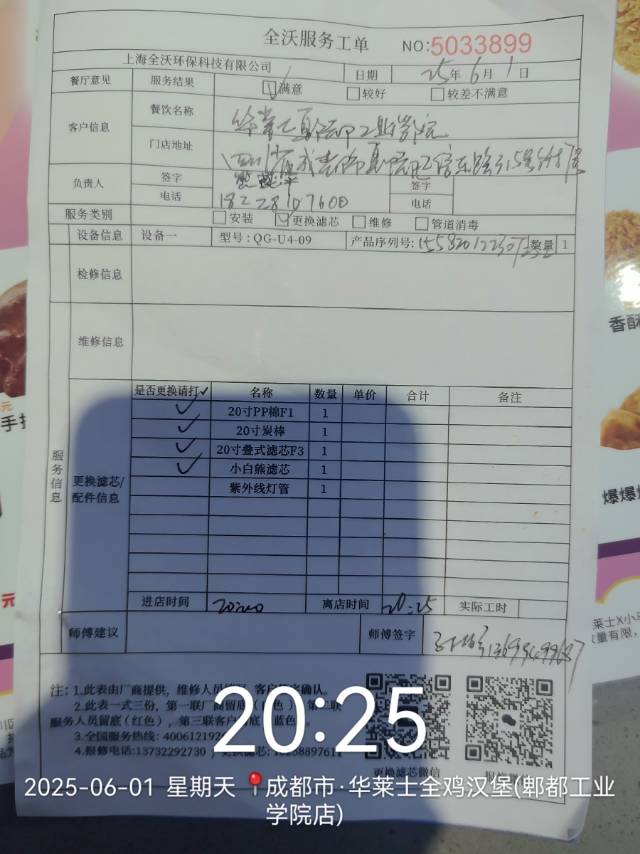 全沃服务工单 NO:5033899
上海全沃环保科技有限公司 日期 25年6月1日
餐厅意见 服务结果 ☑满意 □较好 □较差不满意
客户信息 餐饮名称 华莱士郫都工业学院
门店地址
负责人 签字 签字
电话 电话
服务类别 □安装 ☑更换滤芯 □维修 □管道消毒
设备信息 设备一 型号：QG-U4-09 产品序列号: 数量 1
检修信息
维修信息
服务信息
更换滤芯/配件信息
是否更换请打✓ 名称 数量 单价 合计 备注
✓ 20寸PP棉F1 1
✓ 20寸炭棒 1
✓ 20寸叠式滤芯F3 1
✓ 小白熊滤芯 1
紫外线灯管 1
进店时间 离店时间 20:25 实际工时
师傅建议 师傅签字
注：1.此表由厂商提供，维修人员 客户 确认。
2.此表一式三份，第一联厂商留底 色），第二联
服务人员留底(红色)，第三联客户 底 蓝色
3.全国服务热线：400612192
4.报修电话:13732292730
更换滤芯微信
20:25
2025-06-01 星期天 成都市·华莱士全鸡汉堡(郫都工业
学院店)
香酥
爆爆
手扌
元
莱士X小
量有限，